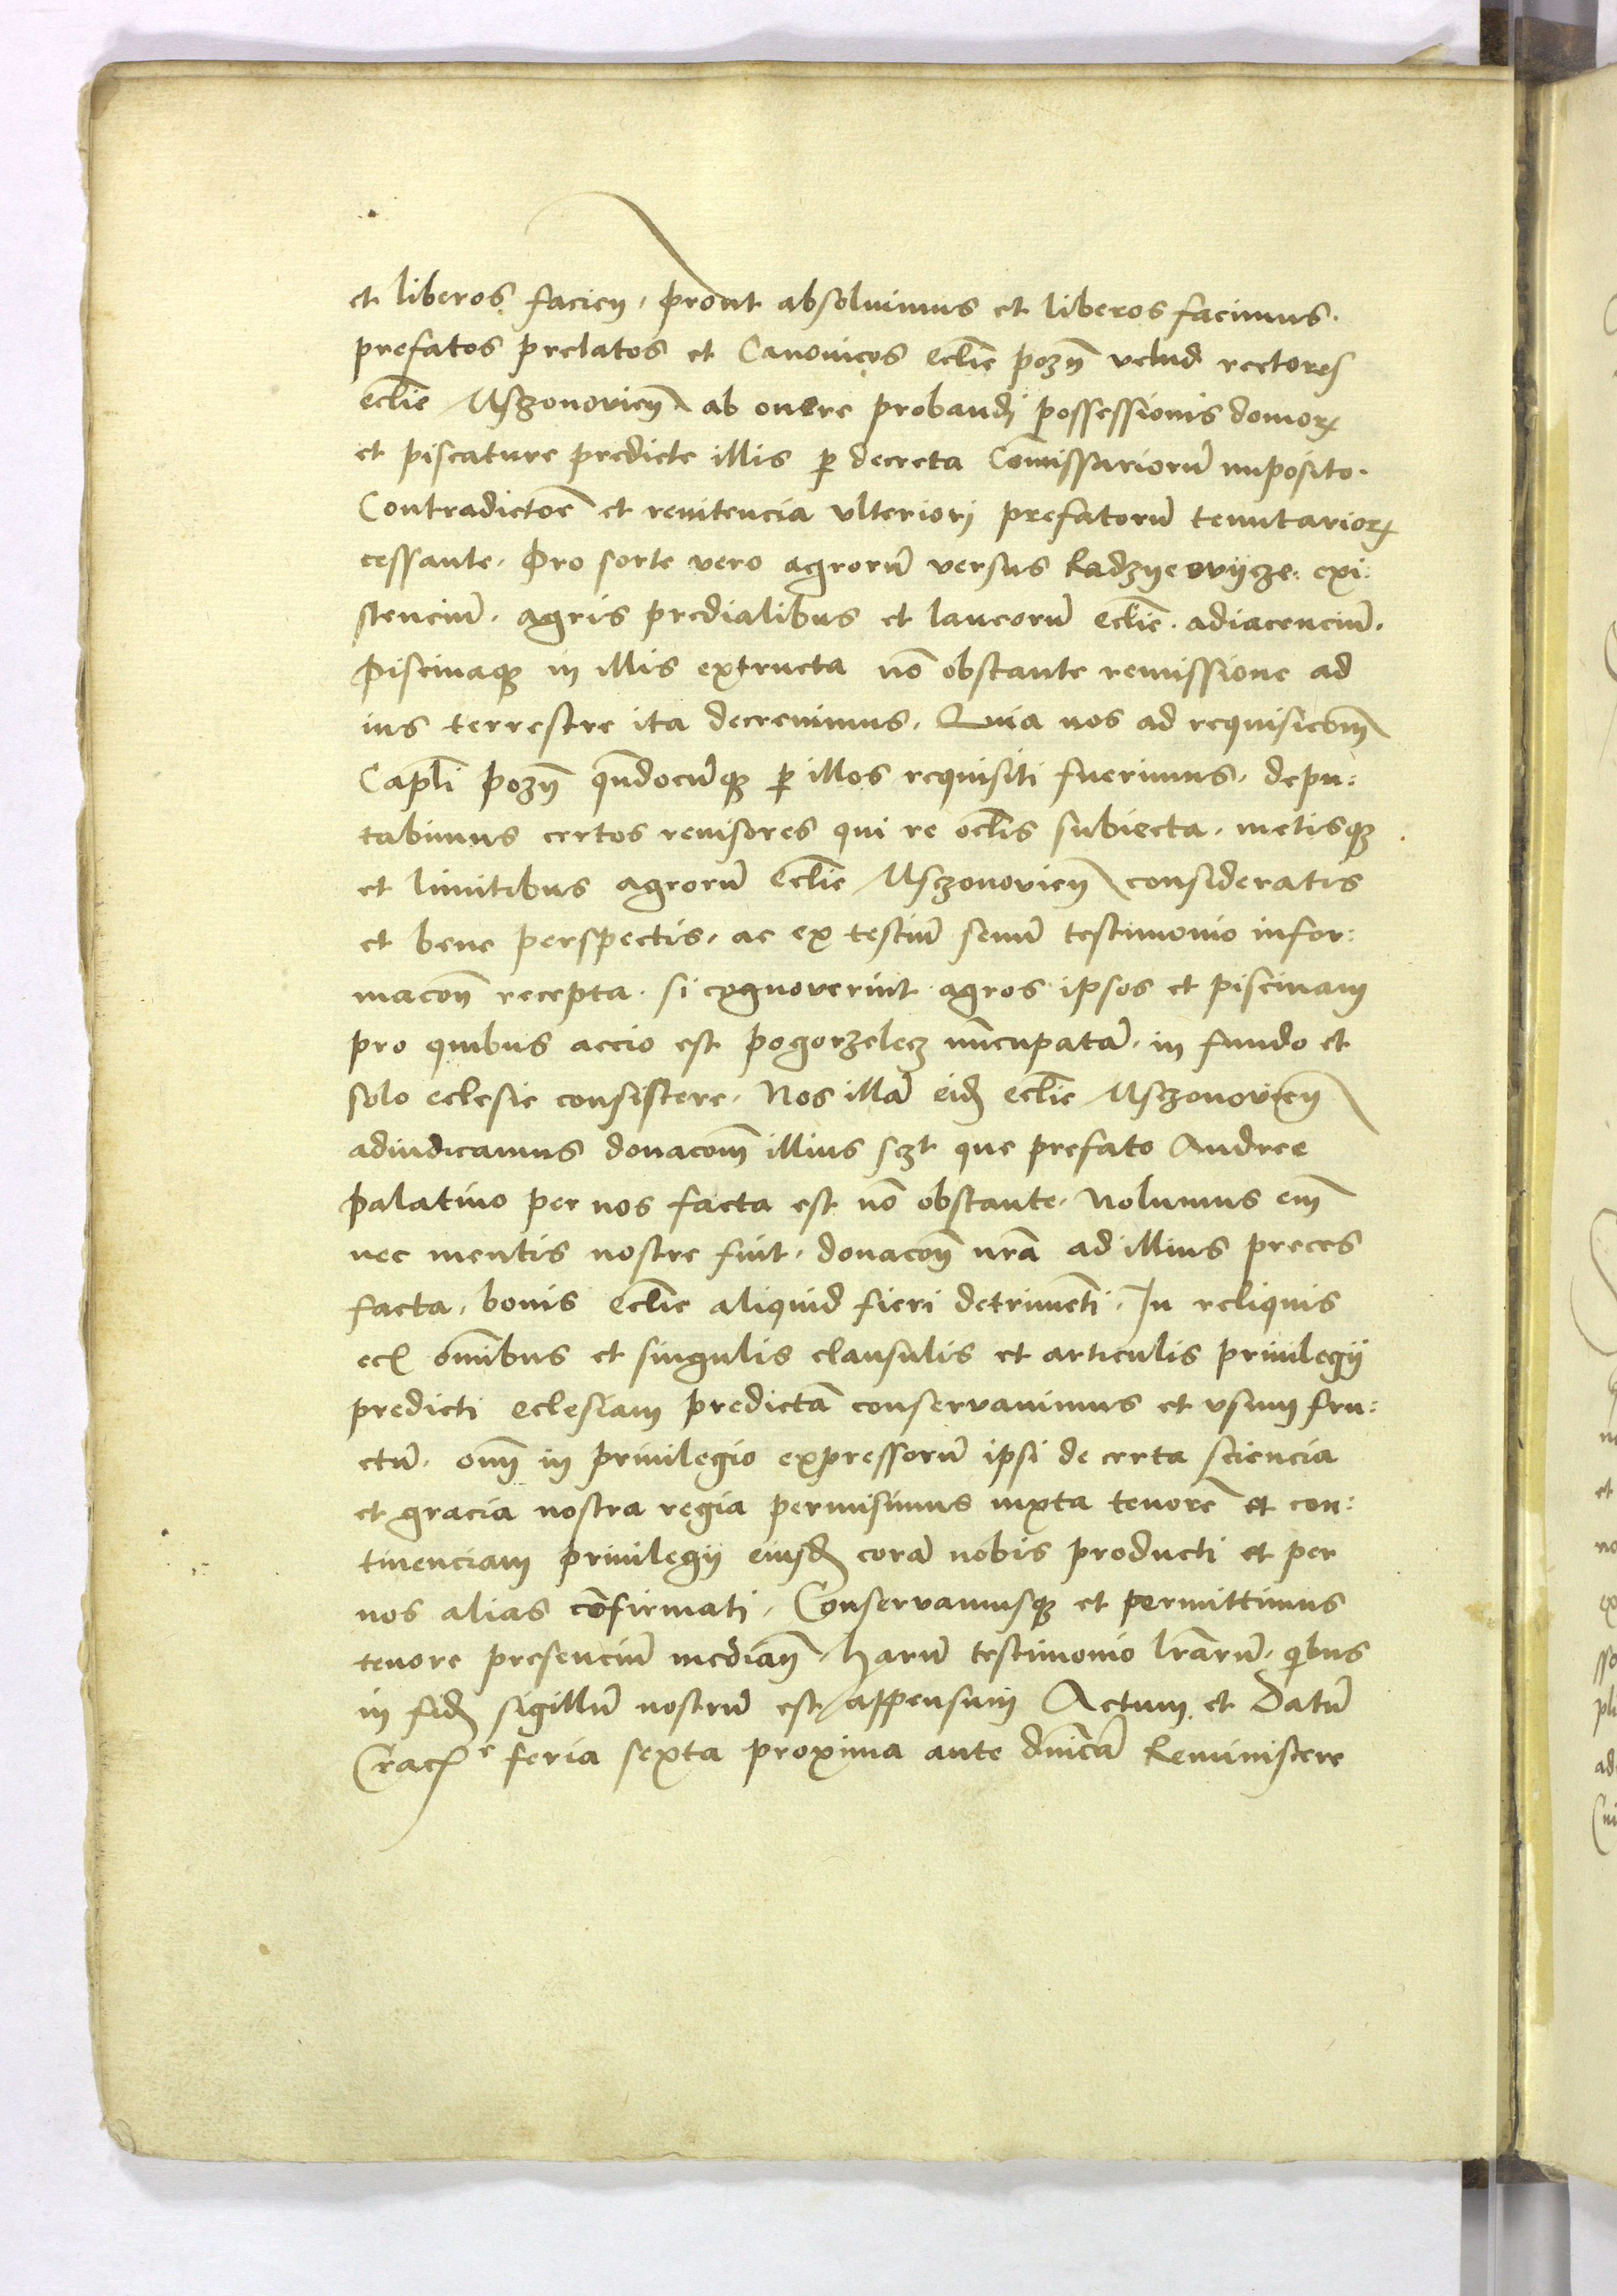 et liberos facien, prout absoluimus et liberos facimus.
prefatos prelatos et Canonicos eclīe pozn̄ velud rectores
eclīe Msczonovien̄ ab onere probandj possessionis domoꝝ
et piscature predicte illis ꝑ decreta Com̄issariorū imposito.
Contradictōe et renitencia vlteriorj prefatorū tenutarioꝝ
cessante. Pro sorte vero agrorū versus Radzyeovijcze: exi:
stenciū. agris predialibus et laneorū eclīe. adiacenciū.
Piscinaqꝫ in illis extructa nō obstante remissione ad
ius terrestre ita decreuimus. Quia nos ad requisicōm̄
Capl̄i pozn̄ qn̄docūqꝫ ꝑ illos requisiti fuerimus, depu:
tabimus certos reuisores qui re oclīs subiecta, metisqꝫ
et limitibus agrorū Eclīe Msczonovien̄ consideratis
et bene perspectis, ac ex testiū seniū testimonio infor:
macōn̄ recepta. si cognoverint agros ipsos et piscinam
pro quibus accio est pogorzelecz nūcupatā. in fundo et
solo eclesie consistere. Nos illā eid̄ eclīe Msczonovien̄
adiudicamus donacōm̄ illius sczt que prefato Andree
palatino per nos facta est nō obstante. Nolumus em̄
nec mentis nostre fuit, donacōn̄ nr̄a ad illius preces
facta, bonis Eclīe aliquid fieri detrimēti. In reliquis
ec̄ om̄ibus et singulis clausulis et articulis priuilegij
predicti eclesiam predictā conservauimus et vsum fru:
ctū. om̄ in priuilegio expressorū ipsi de certa sciencia
et gracia nostra regia permisimus iuxta tenorē et con:
tinenciam priuilegij eiusd̄ corā nobis producti et per
nos alias cōfirmati. Conservamusqꝫ et permittimus
tenore presenciū median̄. harū testimonio lr̄arū. qibus
in fid̄ sigillū nostrū est appensum Actum et Datū
Crac̄e feria sexta proxima ante dn̄icā Reminiscere